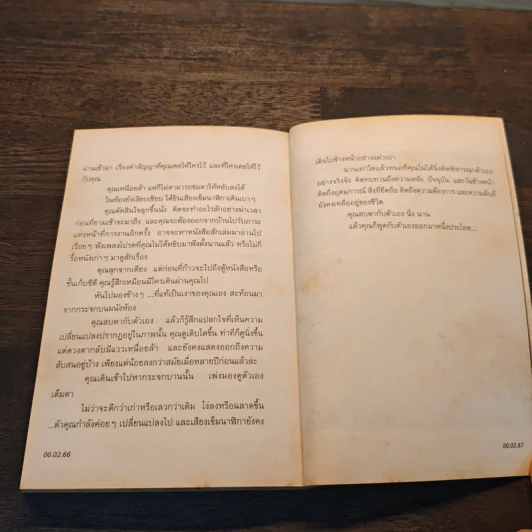 ผ่านเข้ามา เรื่องคำสัญญาที่คุณเคยให้ใครไว้ และที่ใครเคยให้ไว้
กับคุณ
คุณเหนื่อยล้า แต่ก็ไม่สามารถข่มตาให้หลับลงได้
ในห้องยังเงียบเชียบ ได้ยินเสียงเข็มนาฬิกาเดินเบาๆ
คุณตัดสินใจลุกขึ้นนั่ง คิดจะทำอะไรสักอย่างฆ่าเวลา
ก่อนที่ยามเช้าจะมาถึง และคุณจะต้องออกจากบ้านไปรับภาระ
แห่งหน้าที่การงานอีกครั้ง อาจจะหาหนังสือสักเล่มมาอ่านไป
เรื่อยๆ ฟังเพลงโปรดที่คุณไม่ได้หยิบมาฟังตั้งนานแล้ว หรือไม่ก็
รื้อหนังเก่าๆ มาดูสักเรื่อง
คุณลุกจากเตียง แต่ก่อนที่ก้าวจะไปถึงตู้หนังสือหรือ
ชั้นเก็บซีดี คุณรู้สึกเหมือนมีใครเดินผ่านคุณไป
หันไปมองช้างๆ ...ที่แท้เป็นเงาของคุณเอง สะท้อนมา
จากกระจกบนผนังห้อง
คุณสบตากับตัวเอง แล้วก็รู้สึกแปลกใจที่เห็นความ
เปลี่ยนแปลงปรากฏอยู่ในภาพนั้น คุณดูเติบโตขึ้น ท่าทีก็ดูนิ่งขึ้น
แต่ดวงตากลับมีแววเหนื่อยล้า และยังคงแสดงออกถึงความ
สับสนอยู่บ้าง เพียงแต่น้อยลงกว่าสมัยเมื่อหลายปีก่อนแล้วล่ะ
คุณเดินเข้าไปหากระจกบานนั้น เพ่งมองดูตัวเอง
เต็มตา
ไม่ว่าจะดีกว่าเก่าหรือเลวกว่าเดิม โง่ลงหรือฉลาดขึ้น
...ตัวคุณกำลังค่อยๆ เปลี่ยนแปลงไป และเสียงเข็มนาฬิกายังคง
00.02.66
เดินไปข้างหน้าอย่างแผ่วเบา
นานเท่าใดแล้วหนอที่คุณไม่ได้นั่งคิดพิจารณาตัวเอง
อย่างจริงจัง คิดทบทวนถึงความหลัง ปัจจุบัน และวันข้างหน้า
คิดถึงอุดมการณ์ สิ่งที่ยึดถือ คิดถึงความต้องการ และความฝันที่
ยังคงเหลืออยู่ของชีวิต
คุณสบตากับตัวเอง นิ่ง นาน
แล้วคุณก็พูดกับตัวเองออกมาหนึ่งประโยค...
00.02.67